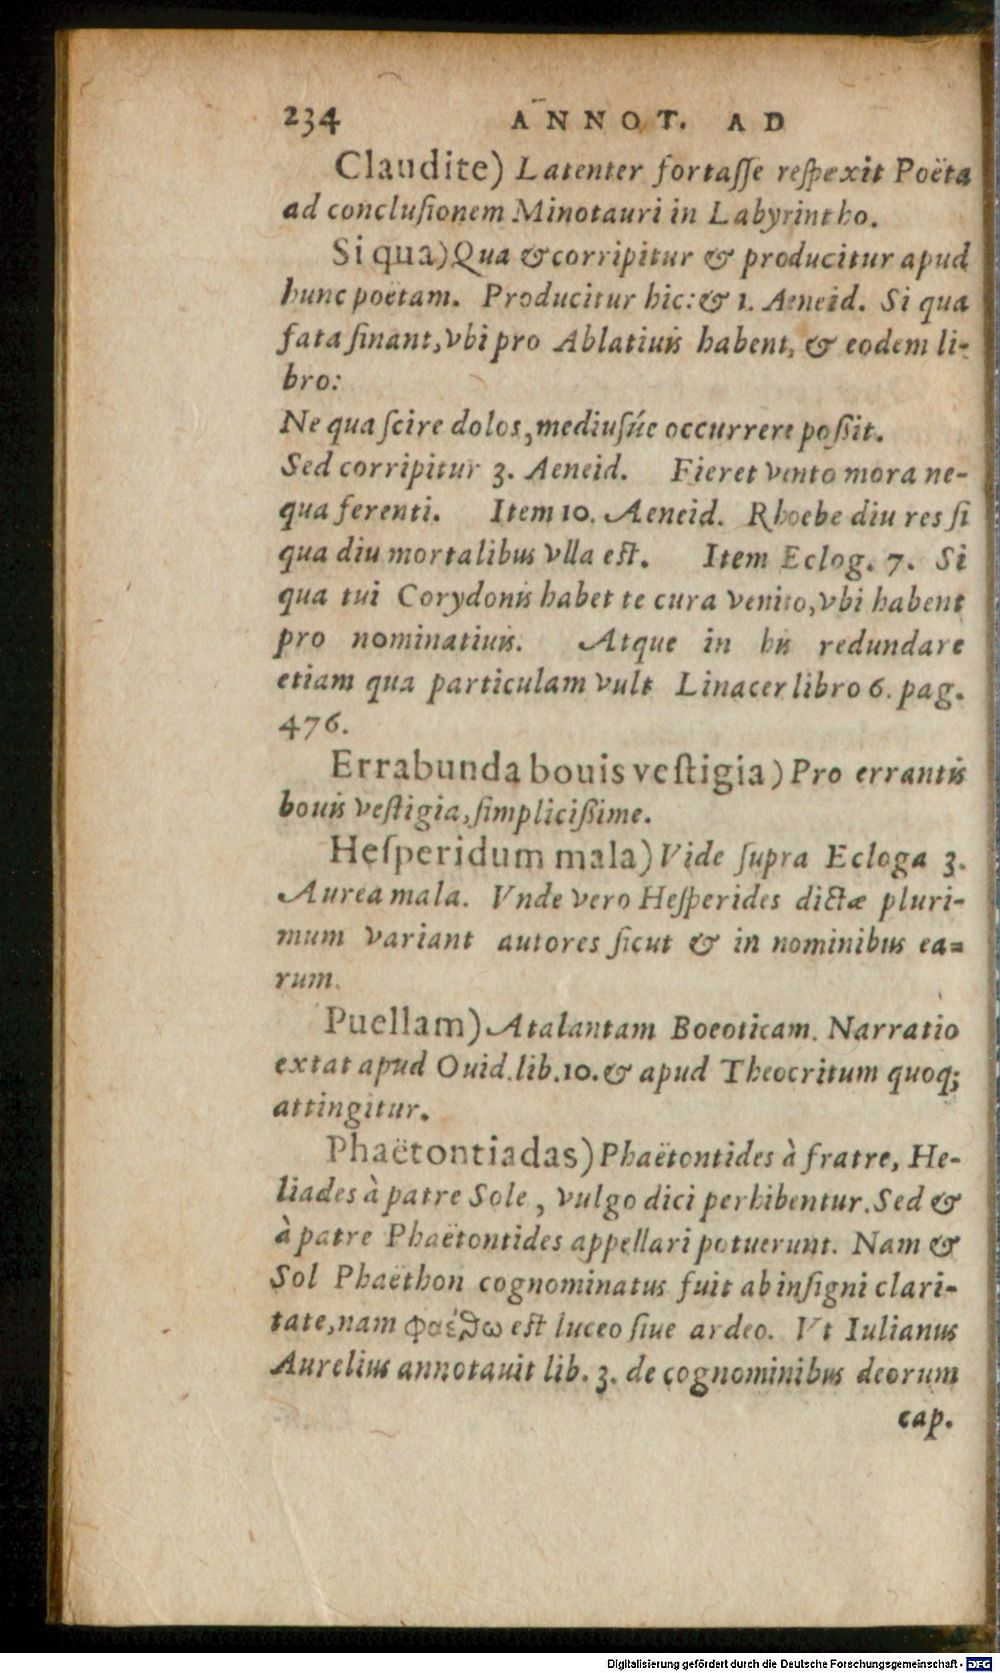 234 ANNOT. AD
Claudite) Latenter fortaſſe reſpexit Poëta
ad concluſionem Minotauri in Labyrintho.
Si qua) Qua & corripitur & producitur apud
hunc poëtam. Producitur hic: & 1. Aeneid. Si qua
fata ſinant, vbi pro Ablatiuis habent, & eodem li-
bro:
Ne qua ſcire dolos, mediuſúe occurrere poſsit.
Sed corripitur 3. Aeneid. Fieret vento mora ne-
qua ferenti. Item 10. Aeneid. Rhoebe diu res ſi
qua diu mortalibus vlla eſt. Item Eclog. 7. Si
qua tui Corydonis habet te cura venito, vbi habent
pro nominatiuis. Atque in his redundare
etiam qua particulam vult Linacer libro 6. pag.
476.
Errabunda bouis veſtigia) Pro errantis
bouis veſtigia, ſimpliciſsime.
Heſperidum mala) Vide ſupra Ecloga 3.
Aurea mala. Vnde vero Heſperides dictæ pluri-
mum variant autores ſicut & in nominibus ea=
rum.
Puellam) Atalantam Boeoticam. Narratio
extat apud Ouid. lib. 10. & apud Theocritum quoq;
attingitur.
Phaëtontiadas) Phaëtontides à fratre, He-
liades à patre Sole, vulgo dici perhibentur. Sed &
à patre Phaëtontides appellari potuerunt. Nam &
Sol Phaëthon cognominatus fuit ab inſigni clari-
tate, nam φαέθω eſt luceo ſiue ardeo. Vt Iulianus
Aurelius annotauit lib. 3. de cognominibus deorum
cap.
Digitalisierung gefördert durch die Deutsche Forschungsgemeinschaft - DFG